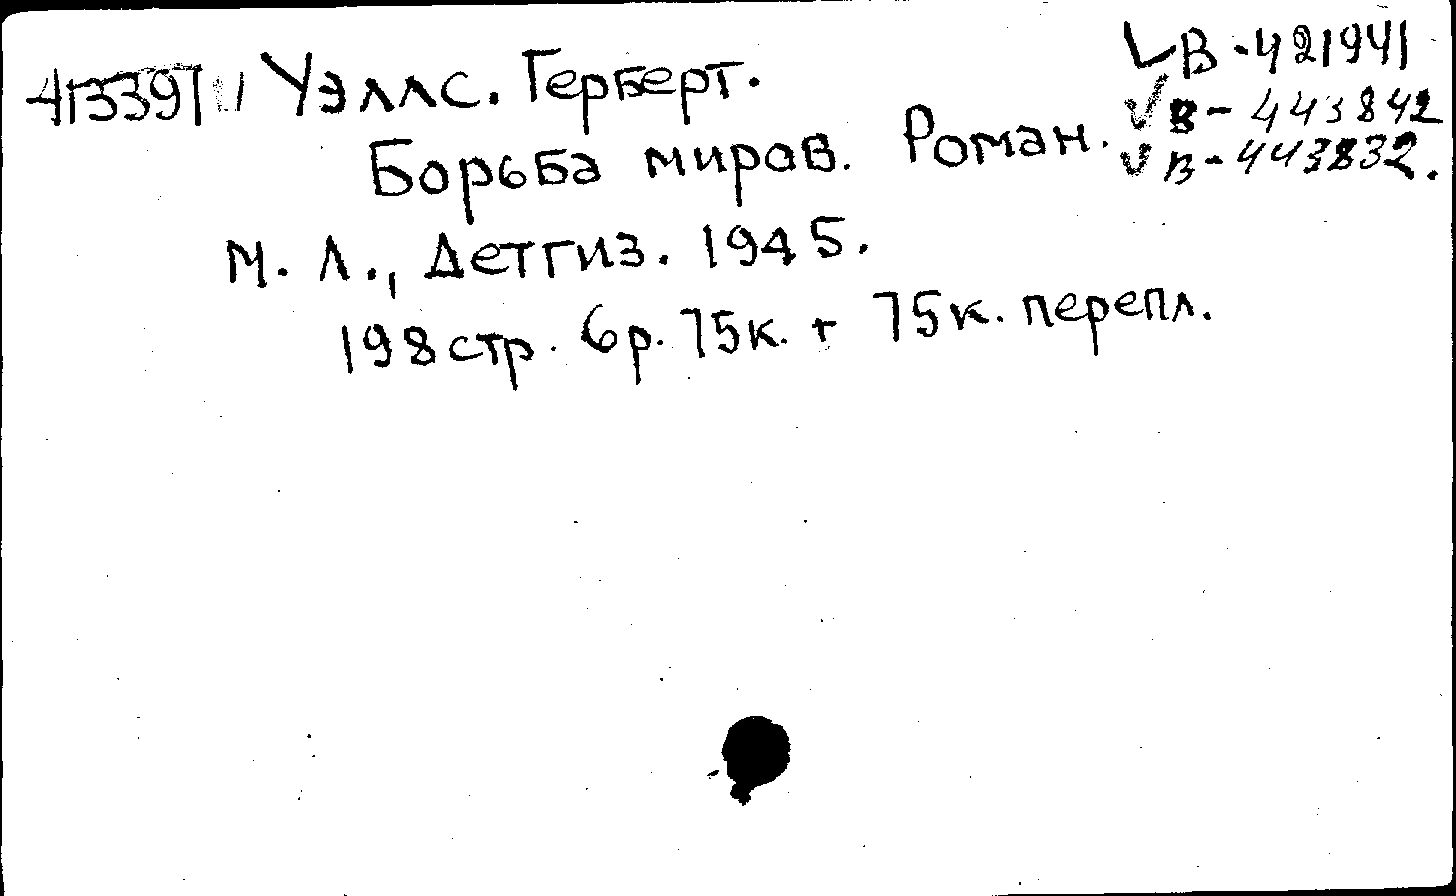 413391 Уэллс. Герберт.
Борьба миров. Роман.
М. Л., Детгиз. 1945.
198 стр. 6р. 75к. + 75к. перепл.
В-421941
В-443842
В-443832.